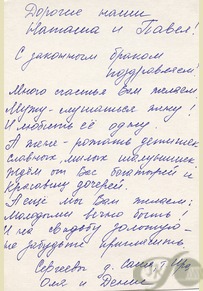 Дорогие наши
Наташа и Павел!
С законным браком
поздравляем!
Много счастья Вам желаем
Мужу - слушаться жену!
И любить её одну.
А жене - рожать детишек
славных, милых шалунишек
Ждём от Вас богатырей и
Красавиц дочерей.
А ещё мы Вам желаем:
Молодыми вечно быть!
И на свадьбу золотую -
не забудьте пригласить
Сергеевы д. Саша, т.
Оля и Денис